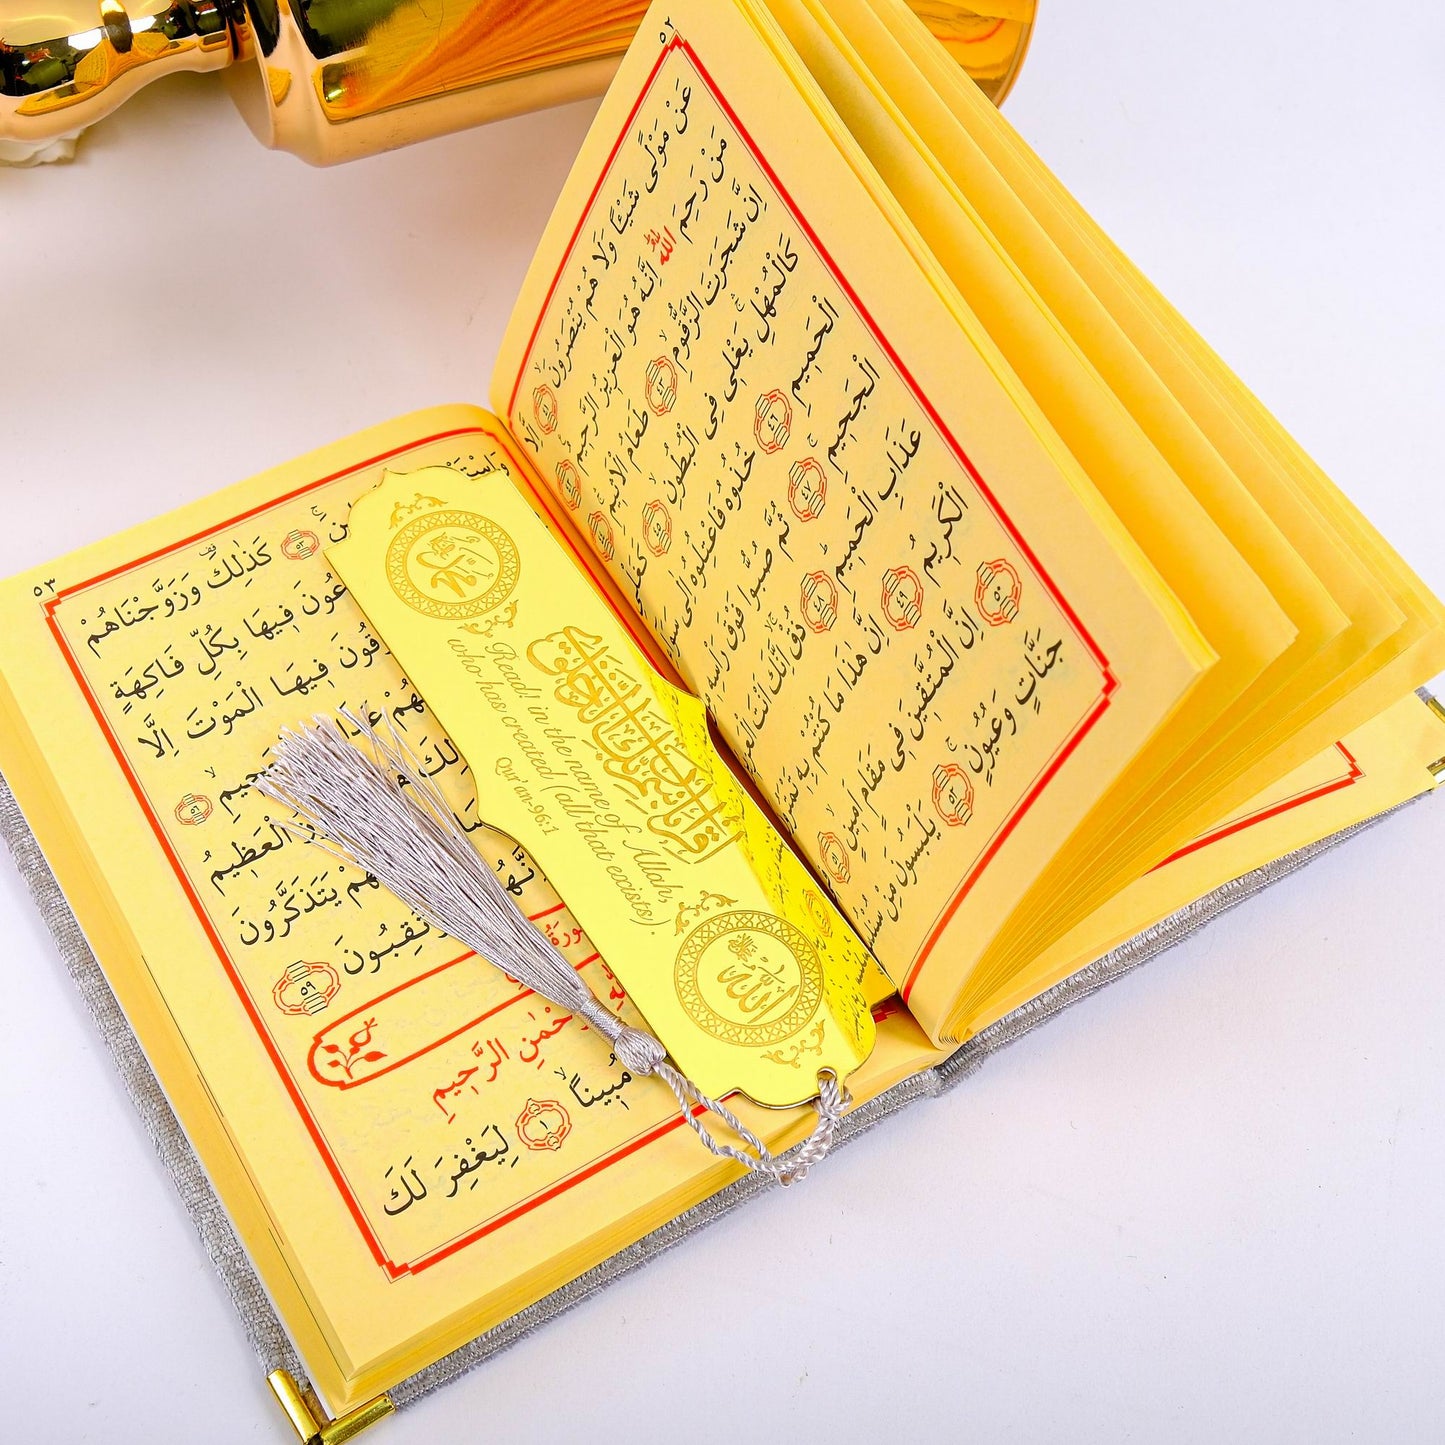 ٥٢
عَنْ مَوْلًى شَيْـًٔا وَلَا هُمْ يُنْصَرُونَۙ ٤١ اِلَّا
مَنْ رَحِمَ اللّٰهُؕ اِنَّهُ هُوَ الْعَزِيزُ الرَّحِيمُ ٤٢
اِنَّ شَجَرَتَ الزَّقُّومِۙ ٤٣ طَعَامُ الْاَثِيمِ ٤٤
كَالْمُهْلِ يَغْلِى فِى الْبُطُونِۙ ٤٥ كَغَلْىِ
الْحَمِيمِ ٤٦ خُذُوهُ فَاعْتِلُوهُ اِلٰى سَوَاءِ
الْجَحِيمِ ٤٧ ثُمَّ صُبُّوا فَوْقَ رَاْسِهِ مِنْ
عَذَابِ الْحَمِيمِ ٤٨ ذُقْ اِنَّكَ اَنْتَ الْعَزِيزُ
الْكَرِيمُ ٤٩ اِنَّ هٰذَا مَا كُنْتُمْ بِهِ تَمْتَرُونَ
٥٠ اِنَّ الْمُتَّقِينَ فِى مَقَامٍ اَمِينٍ ٥١
جَنَّاتٍ وَعُيُونٍ ٥٢ يَلْبَسُونَ مِنْ سُنْدُسٍ
٥٣
وَاِسْتَبْ
٥٣ كَذٰلِكَ وَزَوَّجْنَاهُمْ
عُونَ فِيهَا بِكُلِّ فَاكِهَةٍ
قُونَ فِيهَا الْمَوْتَ اِلَّا
هُمْ عَذَا
حِيمِ ٥٦
الْعَظِيمُ
هُمْ يَتَذَكَّرُونَ
تَقِبُونَ ٥٩
حْمٰنِ الرَّحِيمِ
مُبِينًا ١ لِيَغْفِرَ لَكَ
محمد
اقرأ باسم ربك الذي خلق
Read! in the name of Allah,
who has created (all that exists).
Qur'an-96:1
الله